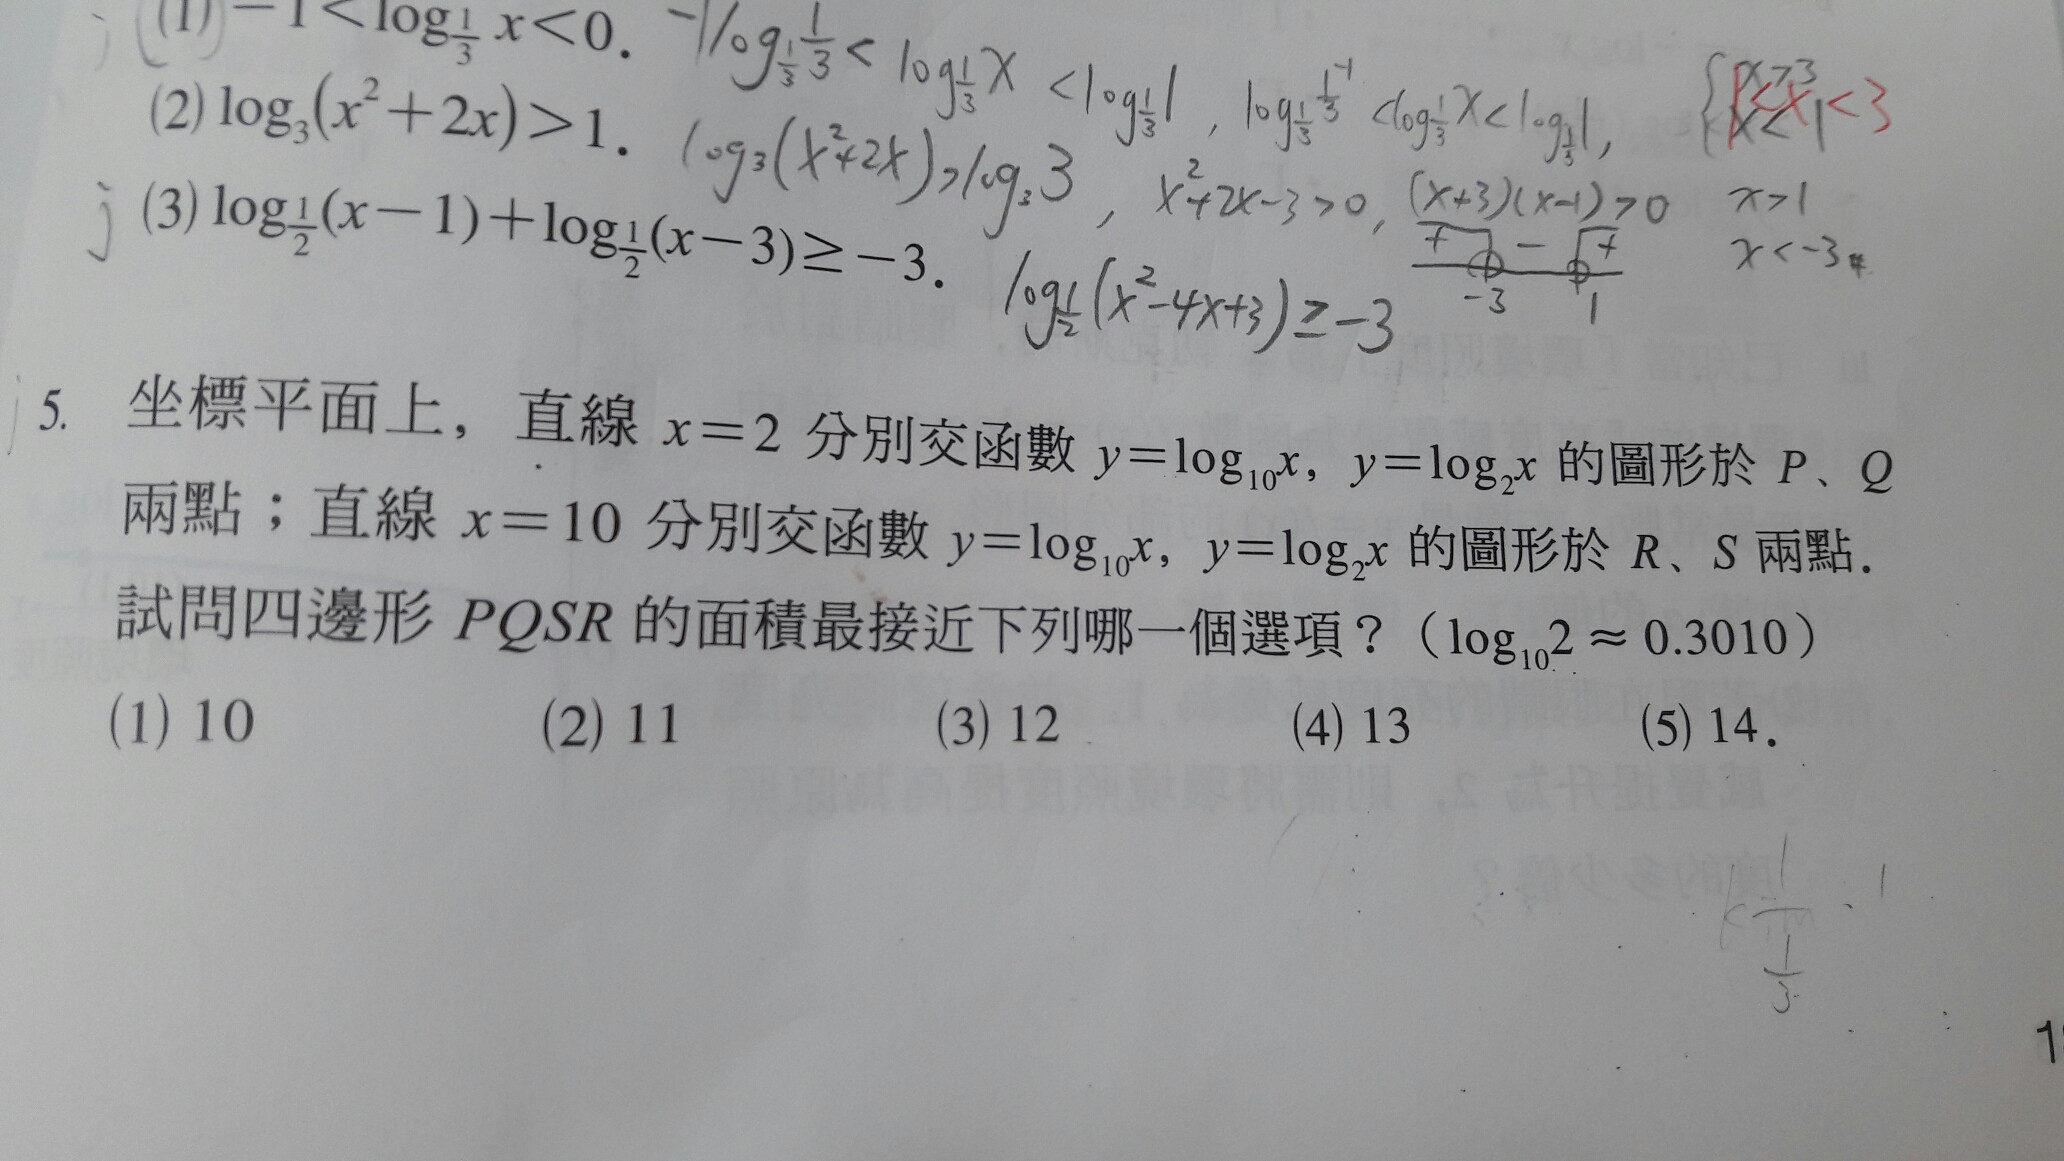 (1) −1<log_{1/3} x<0. −1log_{1/3} 1/3 < log_{1/3} x < log_{1/3} 1, log_{1/3} 1/3^{-1} < log_{1/3} x < log_{1/3} 1, 1<x<3
(2) log₃(x²+2x)>1. log₃(x²+2x)>log₃3, x²+2x−3>0, (x+3)(x−1)>0 x>1
+ − + x<−3#
−3 1
(3) log_{1/2}(x−1)+log_{1/2}(x−3)≥−3. log_{1/2}(x²−4x+3)≥−3
5. 坐標平面上，直線 x=2 分別交函數 y=log₁₀x, y=log₂x 的圖形於 P、Q
兩點；直線 x=10 分別交函數 y=log₁₀x, y=log₂x 的圖形於 R、S 兩點.
試問四邊形 PQSR 的面積最接近下列哪一個選項？（log₁₀2≈0.3010）
(1) 10 (2) 11 (3) 12 (4) 13 (5) 14.
1/3